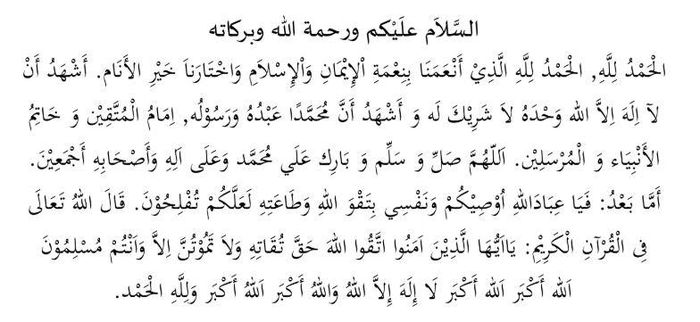 السَّلاَم علَيْكم ورحمة الله وبركاته
الْحَمْدُ لِلَّهِ, الْحَمْدُ لِلَّهِ الَّذِيْ أَنْعَمَنَا بِنِعْمَةِ الْإِيْمَانِ وَالْإِسْلَامِ وَاخْتَارَناَ خَيْرِ الأَنَام. أَشْهَدُ أَنْ
لاَ اِلَهَ اِلاَّ الله وَحْدَهُ لاَ شَرِيْكَ لَه و أَشْهَدُ أَنَّ مُحَمَّدًا عَبْدُهُ وَرَسُوْلُه, اِمَامُ الْمُتَّقِيْن وَ خَاتِمُ
الأَنْبِيَاء وَ الْمُرْسَلِيْن. اَللّهُمَّ صَلِّ وَ سَلِّم وَ بَارِك عَلَي مُحَمَّد وَعَلَى اَلِهِ وَأَصْحَابِهِ أَجْمَعِيْنَ.
أَمَّا بَعْدُ: فَيَا عِبَادَاللهِ أُوْصِيْكُمْ وَنَفْسِي بِتَقْوَ اللهِ وَطَاعَتِهِ لَعَلَّكُمْ تُفْلِحُوْنَ. قَالَ اللهُ تَعَالَى
فِى الْقُرْآنِ الْكَرِيْمِ: يَااَيُّهَا الَّذِيْنَ اَمَنُوا اتَّقُوا اللهَ حَقَّ تُقَاتِهِ وَلاَ تَمُوْتُنَّ اِلاَّ وَاَنْتُمْ مُسْلِمُوْنَ
اَلله أَكْبَر اَلله أَكْبَر لَا إِلَهَ إِلاَّ اللهُ وَاللهُ أَكْبَر اَللهُ أَكْبَر وَلِلَّهِ الْحَمْد.